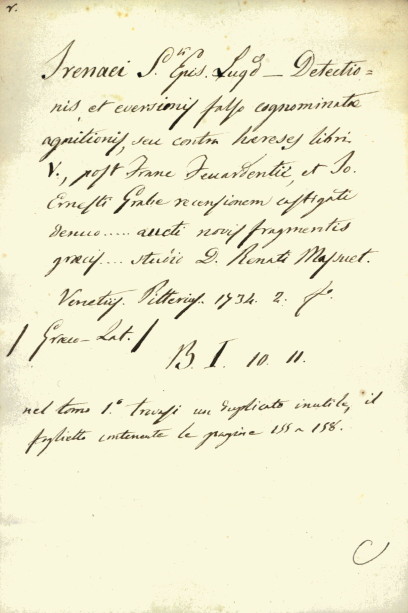 r.
Irenaei S.ti Epis. Lugd — Detectio=
nis et eversionis falso cognominatæ
agnitionis, seu contra hæreses libri
V., post Franc Feuardentii, et Jo.
Ernesti Grabe recensionem castigati
denuo..... aucti novis fragmentis
græcis.... studio D. Renati Massuet.
Venetiis. Pitteris. 1734. 2. f.o
/ Græco-Lat. /
B. I. 10. 11.
nel tomo 1.o trovasi un duplicato inutile, il
foglietto contenente le pagine 155 a 158.